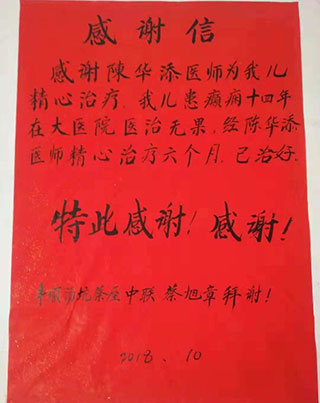 感谢信
感谢陳华添医师为我儿
精心治疗.我儿患癫痫十四年
在大医院医治无果,经陈华添
医师精心治疗六个月.已治好.
特此感谢!感谢!
中联 蔡旭章拜谢!
2018.10